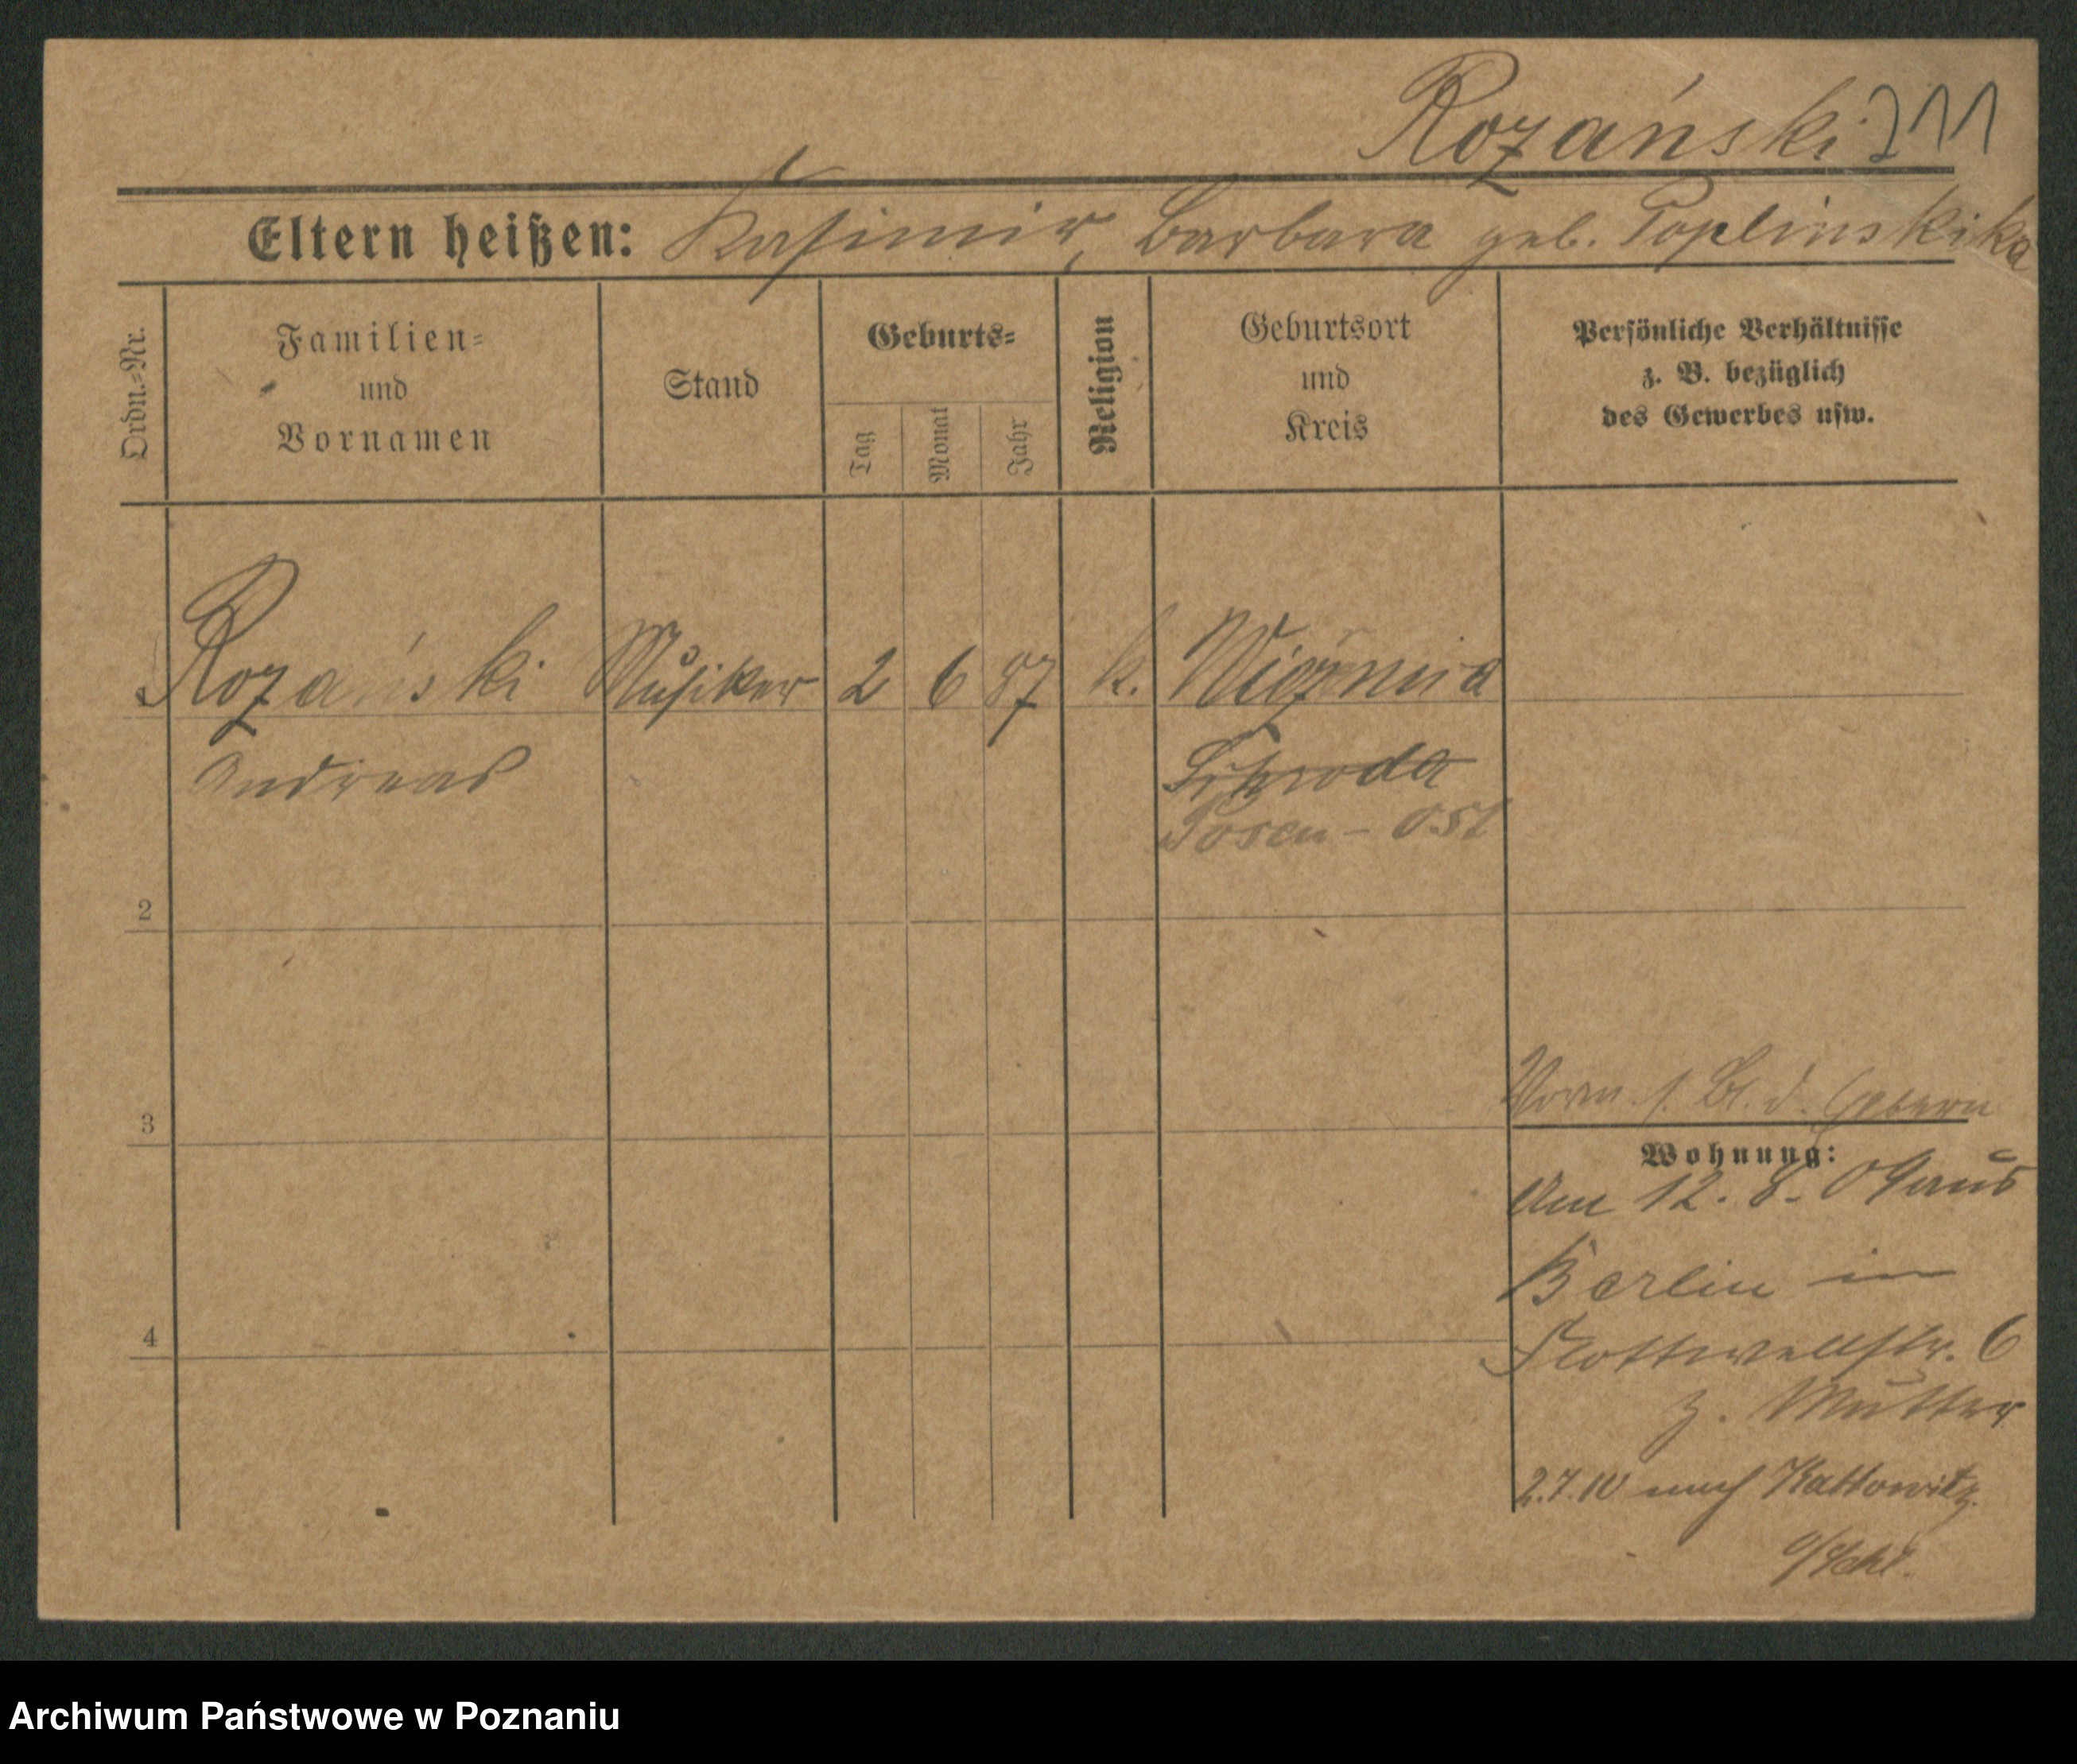 Rozański 211
Eltern heißen: Kasimir, Barbara geb. Poplinski ka
Ordn.-Nr.
Familien-
und
Vornamen
Stand
Geburts-
Tag
Monat
Jahr
Religion
Geburtsort
und
Kreis
Persönliche Verhältnisse
z. B. bezüglich
des Gewerbes usw.
1 Rozański Musiker 2 6 87 k.
Andreas
Schroda
Posen-Ost
2
3
4
Vorm. s. Bl. d. Eltern
Wohnung:
Am 12.8.09 aus
Berlin in
Flottwellstr. 6
z. Mutter
2.7.10 nach Kattowitz
o/Schl.
Archiwum Państwowe w Poznaniu